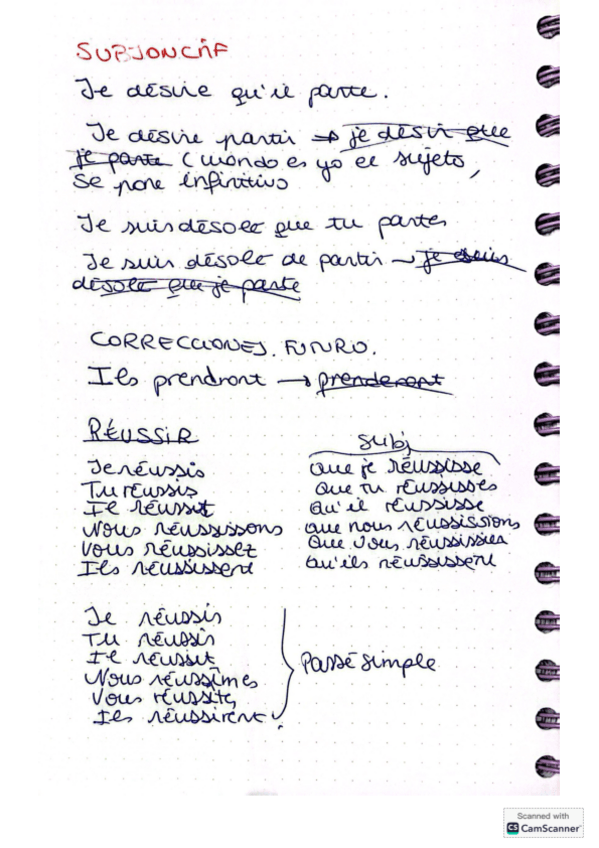 SUBJONCTIF
Je désire qu'il parte.
Je désire partir → je désir que
je parte (cuando es yo el sujeto,
se pone infinitivo
Je suis désolé que tu partes
Je suis désolé de partir → je suis
désolé que je parte
CORRECCIONES. FUTURO.
Ils prendront → prenderont
RÉUSSIR
Subj
Je réussis que je réussisse
Tu réussis que tu réussisses
Il réussit qu'il réussisse
Nous réussissons que nous réussissions
Vous réussissez que vous réussissiez
Ils réussissent qu'ils réussissent
Je réussis
Tu réussis
Il réussit
Nous réussîmes Passé simple
Vous réussîtes
Ils réussirent
Scanned with
CS CamScanner